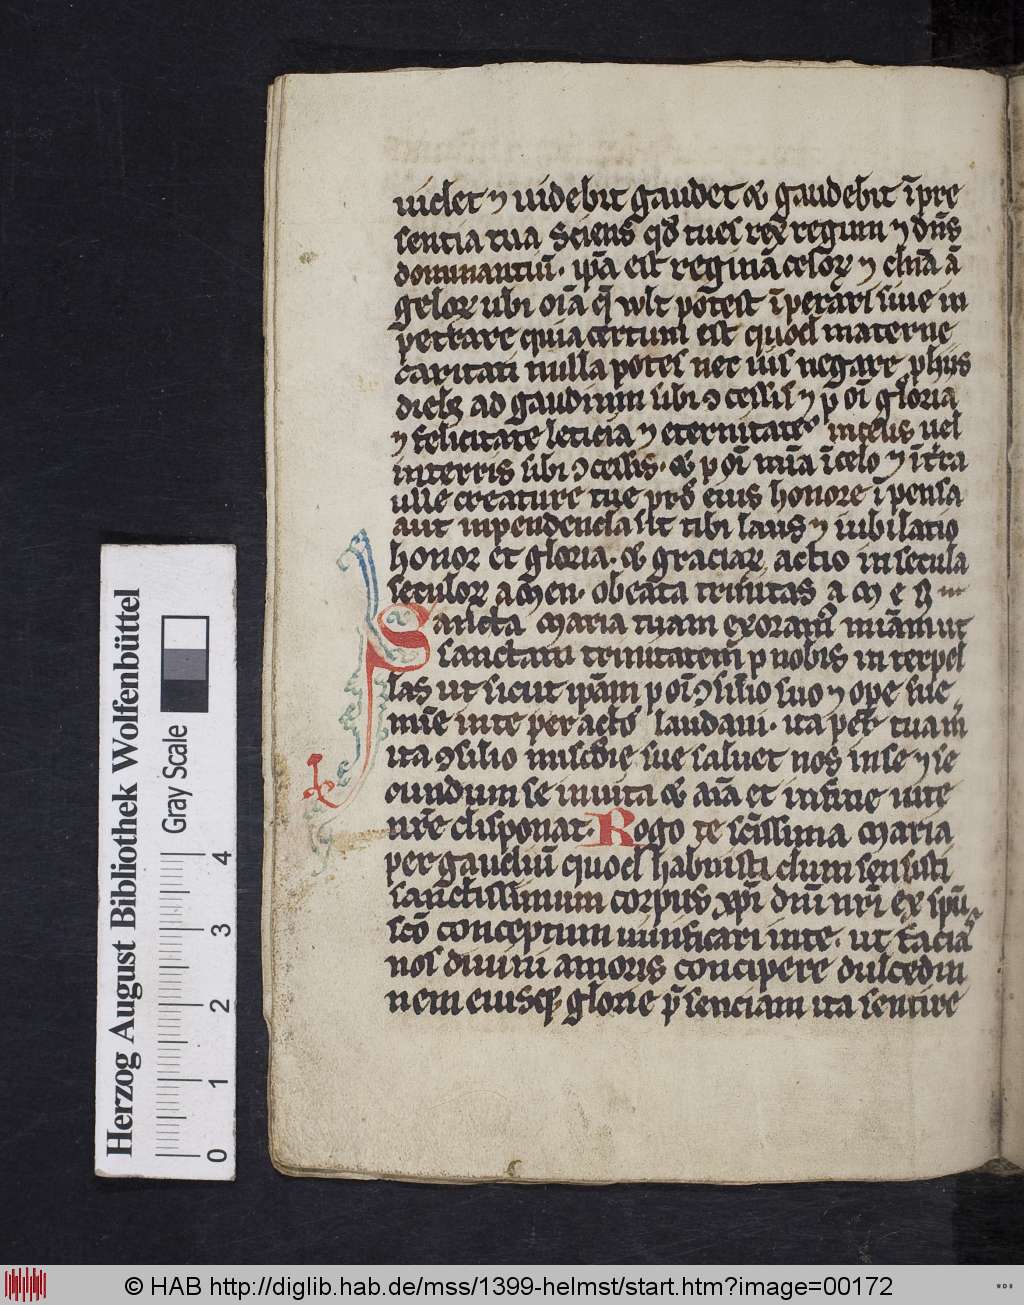 uidet ⁊ uidebit gaudet & gaudebit ī pre
sentia tua Sciens qđ tu es rex regum ⁊ dn̄s
dominantiū. ip̄a est reginā celoꝝ ⁊ dn̄ā ā
geloꝝ ubi oīa q̄ wlt potest īperāri siue in
petrare quia certum est quod materne
caritati nulla potes nec uis negare. p hiis
dieb; ad gaudium sibi ꝯcessis ⁊ p̄ oī gloria
⁊ felicitate leticia ⁊ eternitate in celis uel
in terris sibi ꝯcessis. & p oī īcelo ⁊ īt̄ra
ulle creature tue eius honore īpensa
aut inpendenda sit tibi laus ⁊ iubilatio
honor et gloria. & graciaꝝ actio in secula
seculoꝝ am̄en. o beāta trinitas a m e n
Sancta maria tuam exoram̄ ut
sanctam trinitatem p nobis interpel
las ut sicut ip̄am p oī ꝯsilio suo ⁊ ope sue
in te per actis laudaui. ita per tuam
ita ꝯsilio misc̄die sue saluet nos in se ⁊ se
cundum se in uita & aīa et in fine uite
nr̄e disponat. Rogo te sc̄issima maria
per gaudiū quod habuisti dum sensisti
sanctissimum corpus xp̄i dn̄i nr̄i ex spū
scō conceptum uiuificari in te. ut facias
nos diuini amoris concipere dulcedin
nem eiusqꝫ glorie p̄senciam ita sentire
Herzog August Bibliothek Wolfenbüttel
Gray Scale
0 1 2 3 4
© HAB http://diglib.hab.de/mss/1399-helmst/start.htm?image=00172